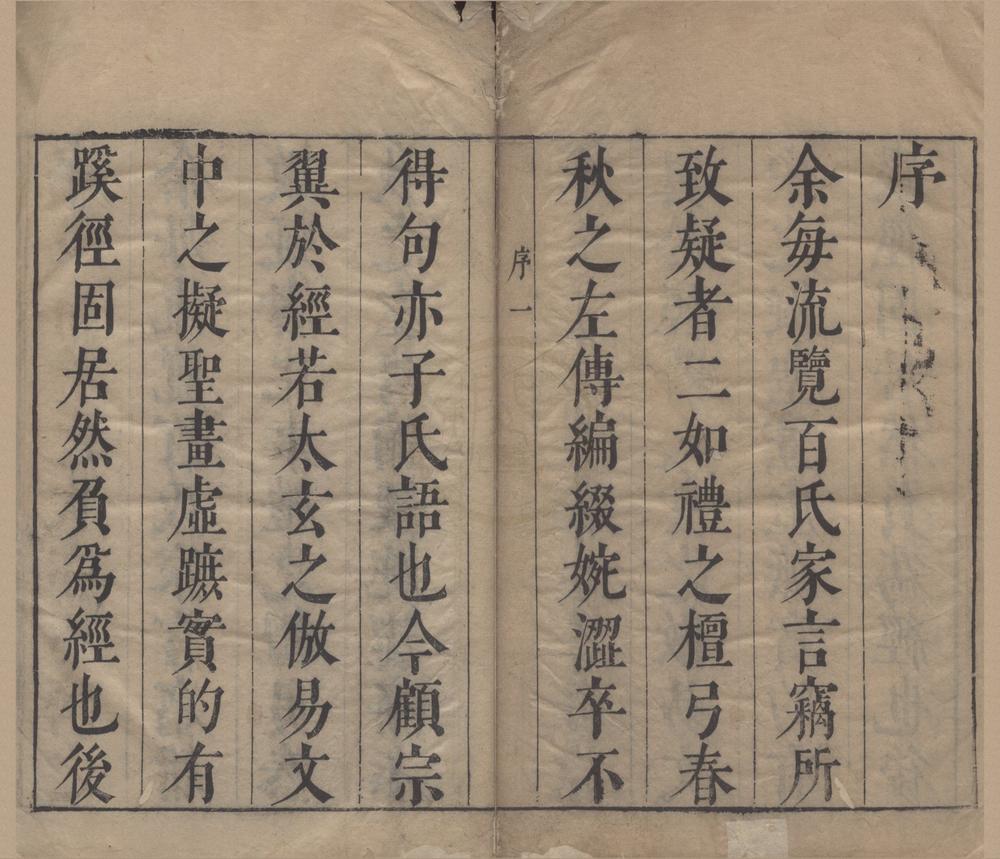 序
余每流覽百氏家言竊所
致疑者二如禮之檀弓春
秋之左傳編綴婉澀卒不
序 一
得句亦子氏語也今顧宗
翼於經若太玄之倣易文
中之擬聖畫虛蹠實的有
蹊徑固居然負為經也後